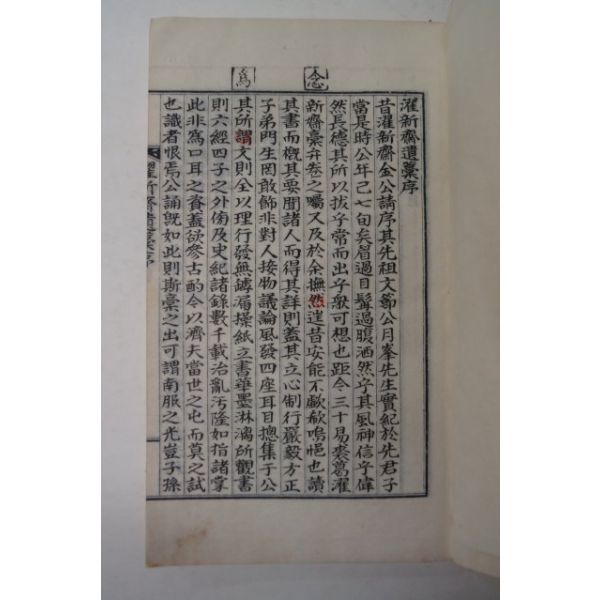 念
焉
濯新齋遺藁序
昔濯新齋金公請序其先祖文節公月峯先生實紀於先君子
當是時公年已七旬矣眉過目髥過腹洒然乎其風神信乎偉
然長德其所以拔乎常而出乎衆可想也距今三十易裘葛濯
新齋藁弁卷之囑又及於余撫然迬昔安能不歔欷嗚悒也讀
其書而槪其要聞諸人而得其詳則蓋其立心制行嚴毅方正
子弟門生罔敢飾非對人接物議論風發四座耳目摠集于公
其所謂文則全以理行發無罅漏操紙立書華墨淋漓所觀書
則六經四子之外傍及史紀諸錄數千載治亂汚隆如指諸掌
此非爲口耳之資蓋欲參古酌今以濟夫當世之屯而莫之試
也識者恨焉公誦旣如此則斯藁之出可謂南服之光豈子孫
濯新齋遺藁序